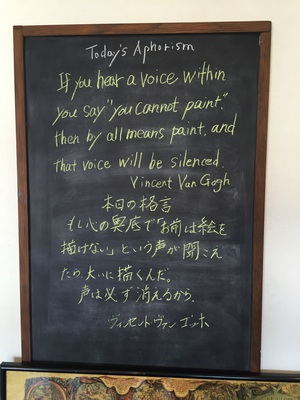 Today's Aphorism
If you hear a voice within
you say "you cannot paint,"
then by all means paint, and
that voice will be silenced.
Vincent Van Gogh
本日の格言
もし心の奥底で「お前は絵を
描けない」という声が聞こえ
たら大いに描くんだ。
声は必ず消えるから.
ヴィンセント・ヴァン ゴッホ